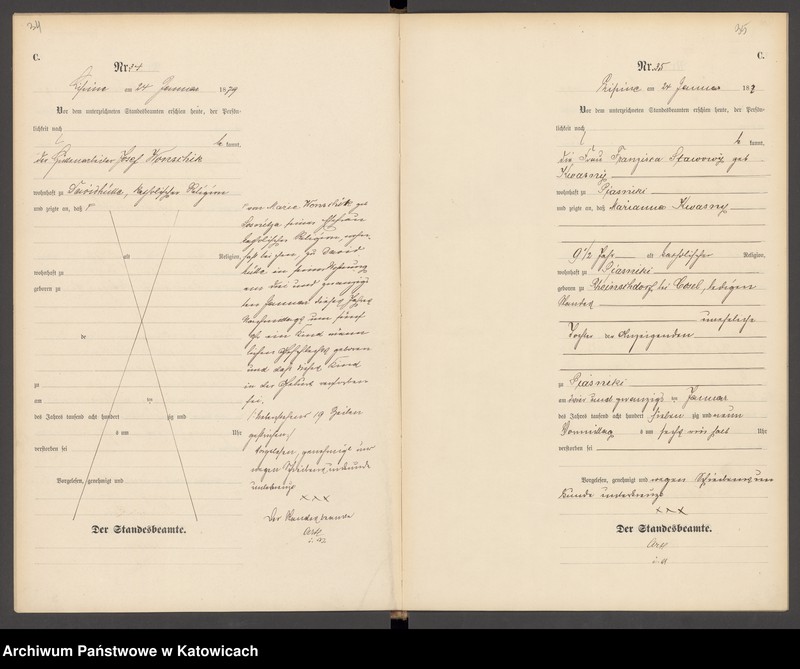 34
C.
Nr. 34
Lipine am 24 Januar 1879
Vor dem unterzeichneten Standesbeamten erschien heute, der Persön-
lichkeit nach
kannt,
der Hüttenarbeiter Josef
wohnhaft zu katholischer Religion
und zeigte an, daß
von Marie geb
seiner Ehefrau
katholischer Religion, wohn-
haft bei ihm, zu
in seiner Wohnung
am drei und zwanzig
ten Januar dieses Jahres
Nachmittags um fünf
Uhr ein Kind männ
lichen Geschlechts geboren
und daß dieses Kind
in der Geburt verstorben
sei.
19 Zeilen
gestrichen
Vorgelesen, genehmigt und
wegen Schreibensunkunde
unterkreuzt
xxx
Der Standesbeamte
alt Religion,
wohnhaft zu
geboren zu
de
zu
am ten
des Jahres tausend acht hundert zig und
um Uhr
verstorben sei
Vorgelesen, genehmigt und
Der Standesbeamte.
35
C.
Nr. 35
Lipine am 24 Januar 18
Vor dem unterzeichneten Standesbeamten erschien heute, der Persön-
lichkeit nach
kannt,
die Frau Franziska geb
Kwasny
wohnhaft zu Piasniki
und zeigte an, daß Marianna Kwasny
9 1/2 Jahr alt katholischer Religion,
wohnhaft zu Piasniki
geboren zu bei Cosel, ledigen
Standes
uneheliche
Tochter der Anzeigenden
zu Piasniki
am und zwanzigs ten Januar
des Jahres tausend acht hundert sieben zig und neun
Vormittag s um sechs ein halb Uhr
verstorben sei
Vorgelesen, genehmigt und wegen Schreibensun
kunde unterkreuzt
xxx
Der Standesbeamte.
Archiwum Państwowe w Katowicach